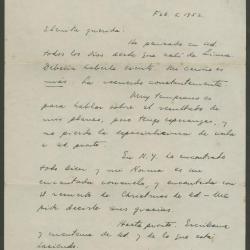 Feb. 6 1952
querida:
He pensado en Ud.
todos los días desde que salí de Lima.
Debería haberle escrito. Mi cariño es
más. La recuerdo constantemente.
Muy temprano es
para hablar sobre el resultado de
mis planes, pero tengo esperanzas, y
no pierdo la de verla
a Ud. pronto.
En N.Y. he encontrado
todo bien y mi es una
encantada con
el recuerdo de Christmas de Ud. – Me
pide decirle sus gracias.
Hasta pronto. Escríbame
y cuénteme de Ud. y de lo que está
haciendo.